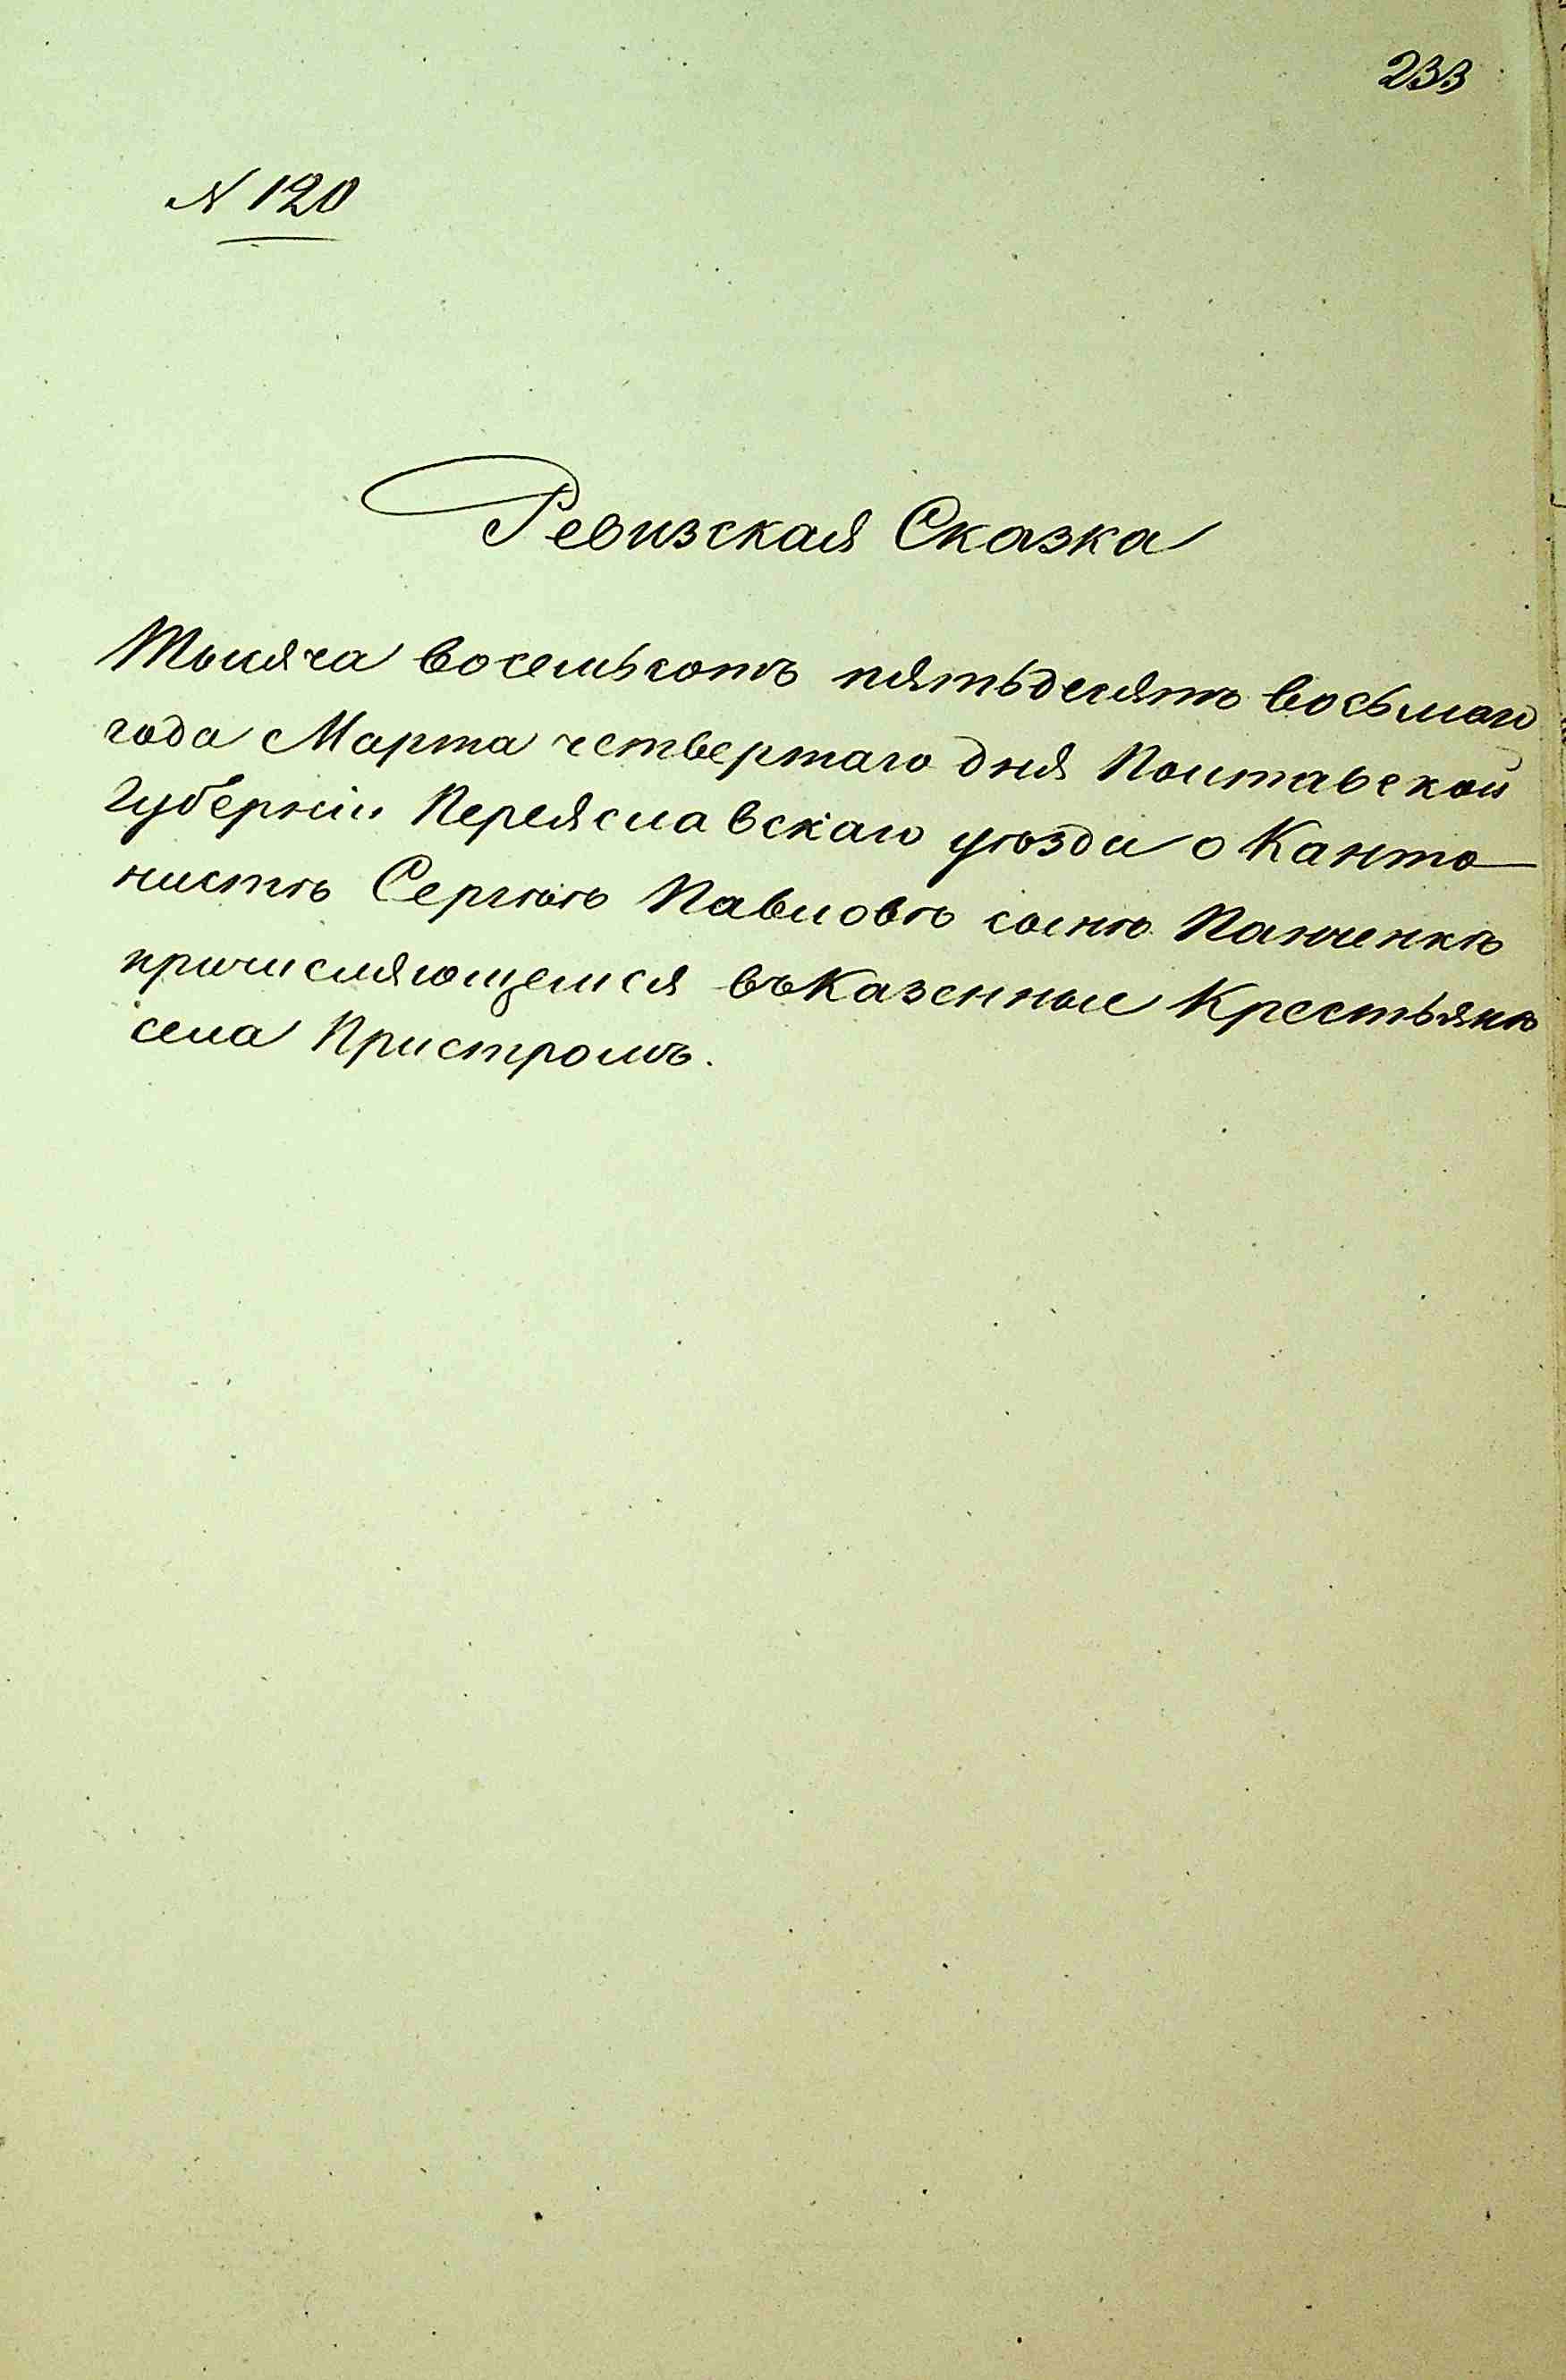 233
N 120
Ревизская Сказка
Тысяча восемьсотъ пятьдесятъ восьмаго
года Марта четвертаго дня Полтавской
Губерніи Переяславскаго уѣзда о Канто
нистѣ Сергѣѣ Павловѣ сынѣ Панченкѣ
причисляющемся въ Казенные Крестьяне
села Пристромъ.